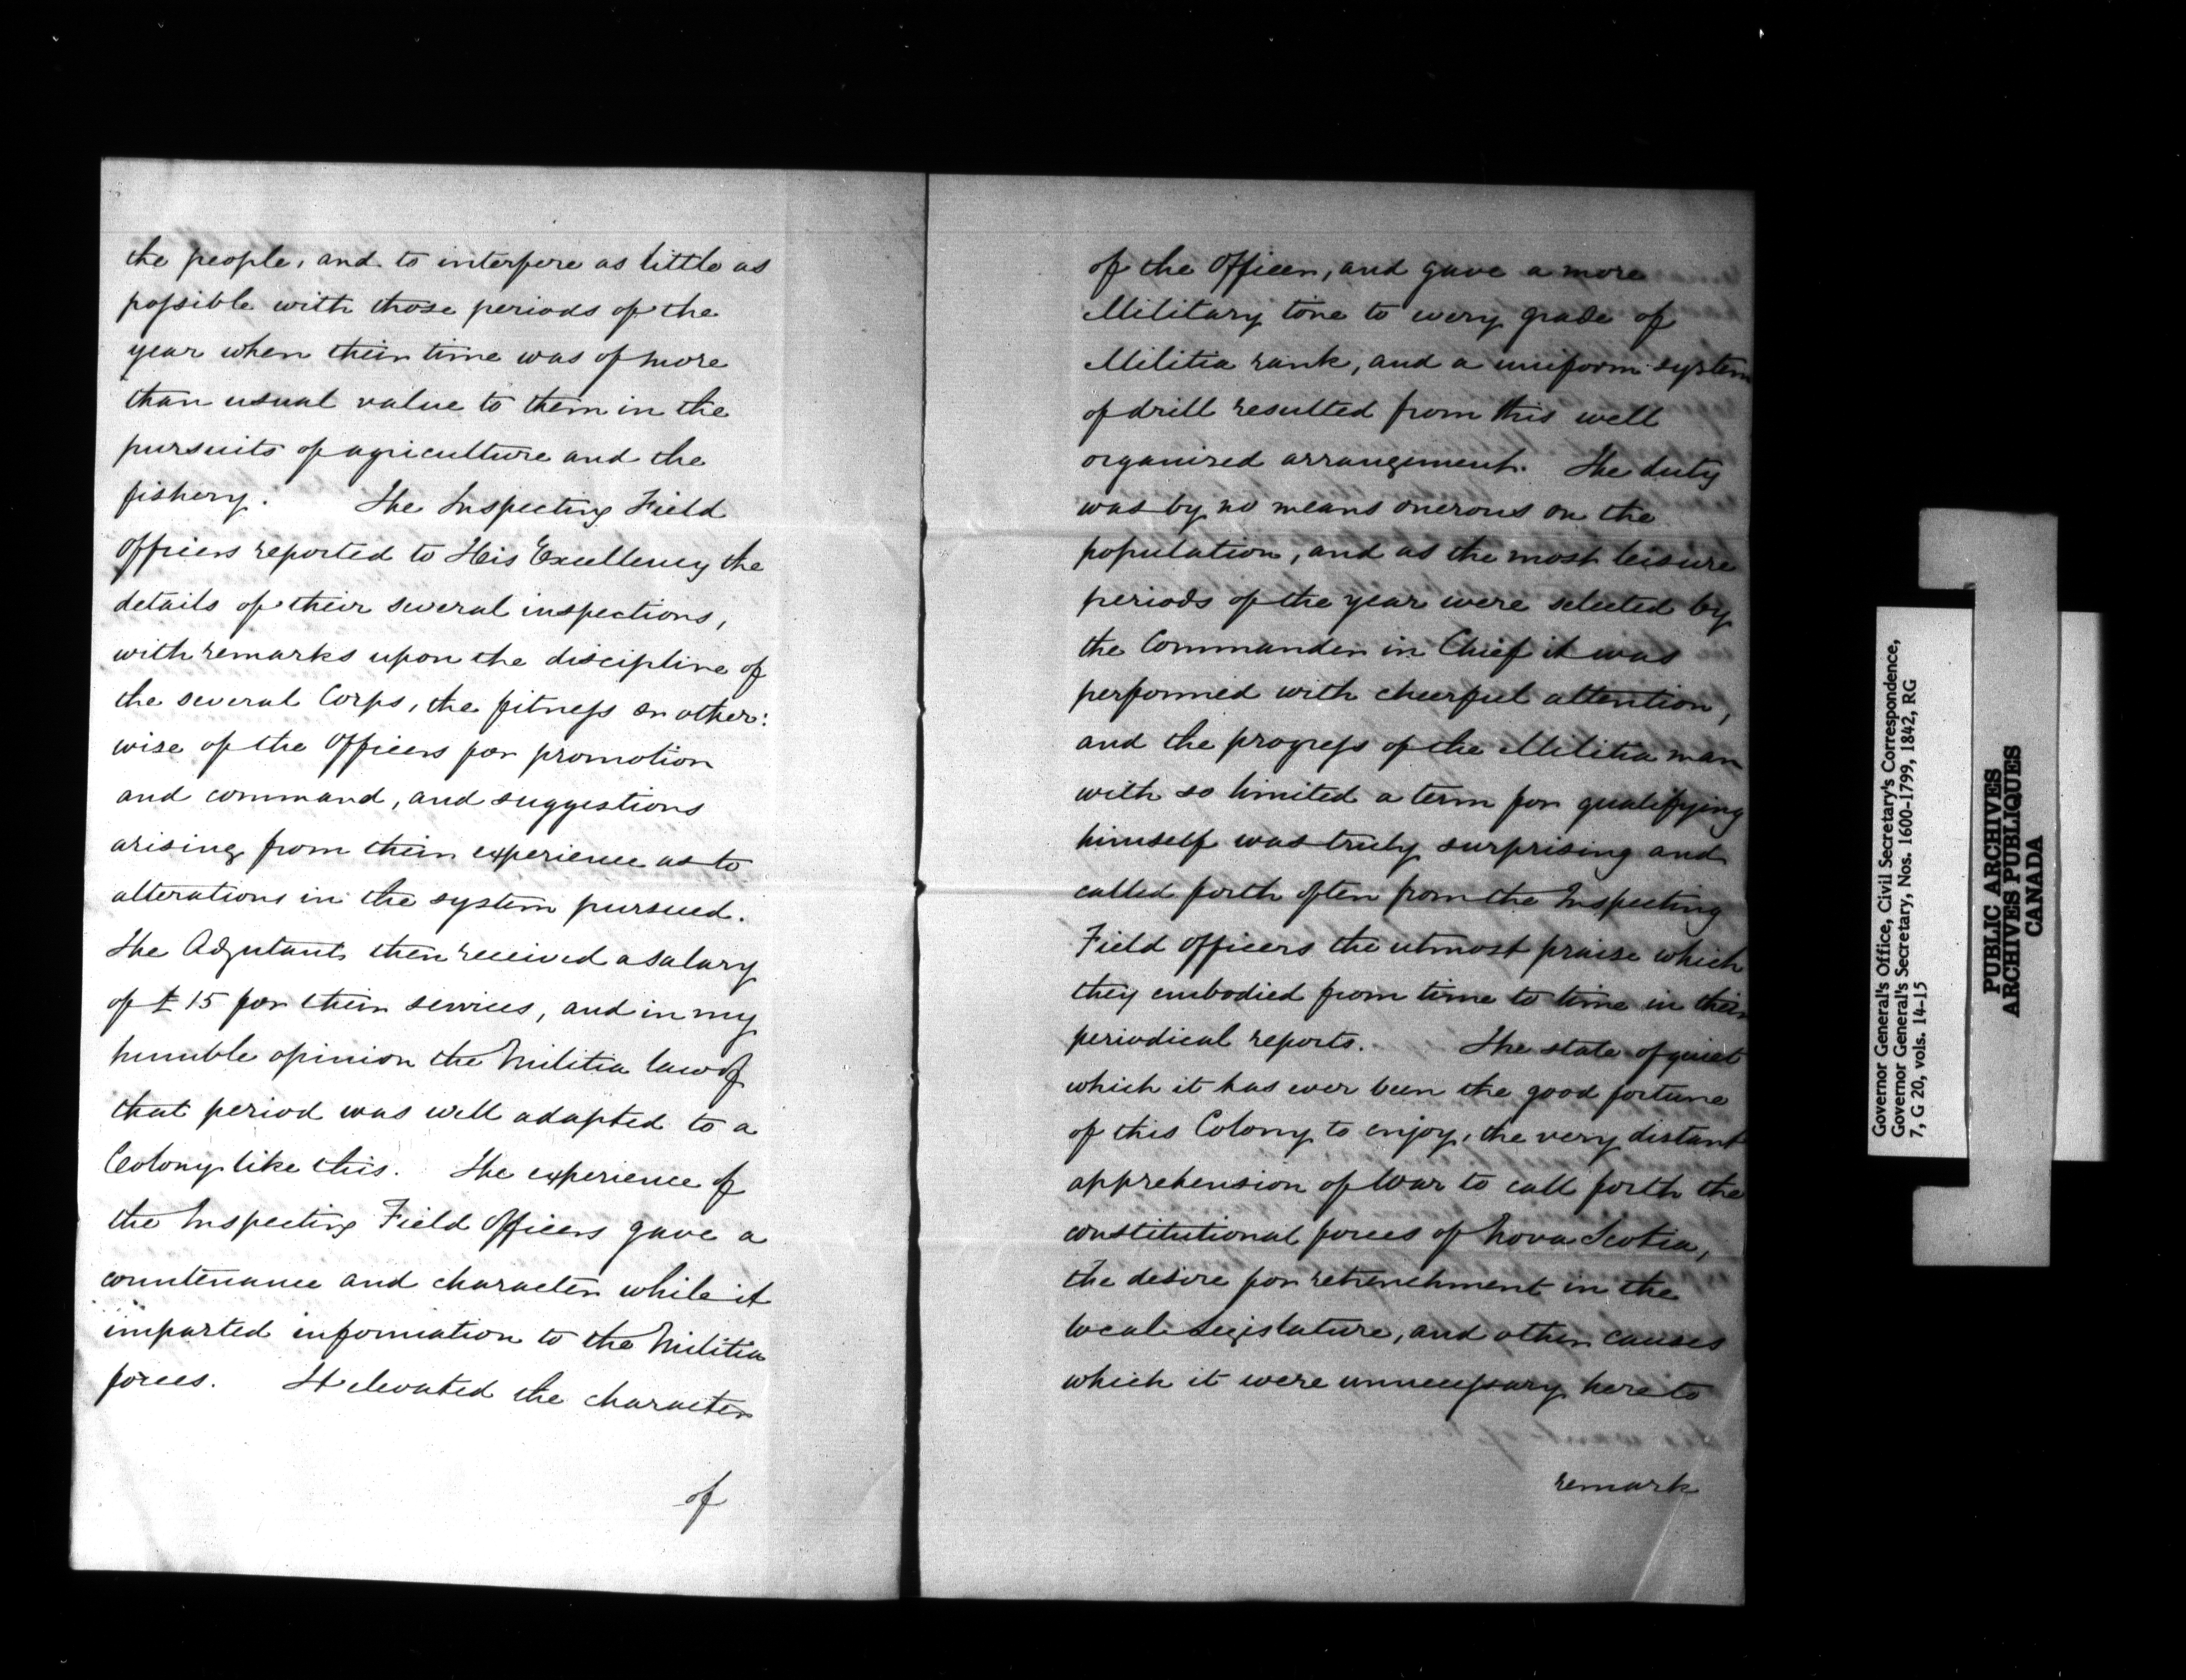 the people, and to interfere as little as
possible with those periods of the
year when their time was of more
than usual value to them in the
pursuits of agriculture and the
fishery. The Inspecting Field
Officers reported to His Excellency the
details of their several inspections,
with remarks upon the discipline of
the several Corps, the fitness or other:
wise of the Officers for promotion
and command, and suggestions
arising from their experience as to
alterations in the system pursued.
The Adjutants then received a salary
of £15 for their services, and in my
humble opinion the Militia law of
that period was well adapted to a
Colony like this. The experience of
the Inspecting Field Officers gave a
countenance and character while it
imparted information to the Militia
forces. It elevated the character
of
of the Officer, and gave a more
Military tone to every grade of
Militia rank, and a uniform system
of drill resulted from this well
organized arrangement. The duty
was by no means onerous on the
population, and as the most leisure
periods of the year were selected by
the Commander in Chief it was
performed with cheerful attention,
and the progress of the Militia man
with so limited a term for qualifying
himself was truly surprising and
called forth often from the Inspecting
Field Officers the utmost praise which
they embodied from time to time in their
periodical reports. The state of quiet
which it has ever been the good fortune
of this Colony to enjoy, the very distant
apprehension of War to call forth the
constitutional forces of Nova Scotia,
the desire for retrenchment in the
local Legislature, and other causes
which it were unnecessary here to
remark
Governor General's Office, Civil Secretary's Correspondence,
Governor General's Secretary, Nos. 1600-1799, 1842, RG
7, G 20, vols. 14-15
PUBLIC ARCHIVES
ARCHIVES PUBLIQUES
CANADA